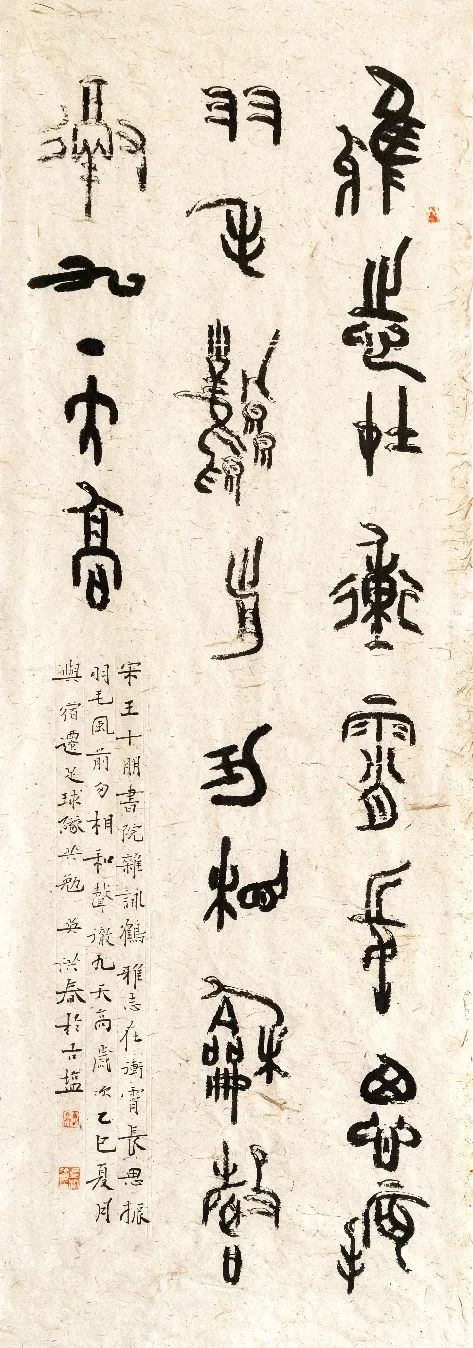 雅志在衝霄長思振
羽毛風前相和聲
徹九天高
宋王十朋書院雜詠鶴雅志在衝霄長思振
羽毛風前相和聲徹九天高歲次乙巳夏月
與宿遷足球隊共勉吳洪春於古塩